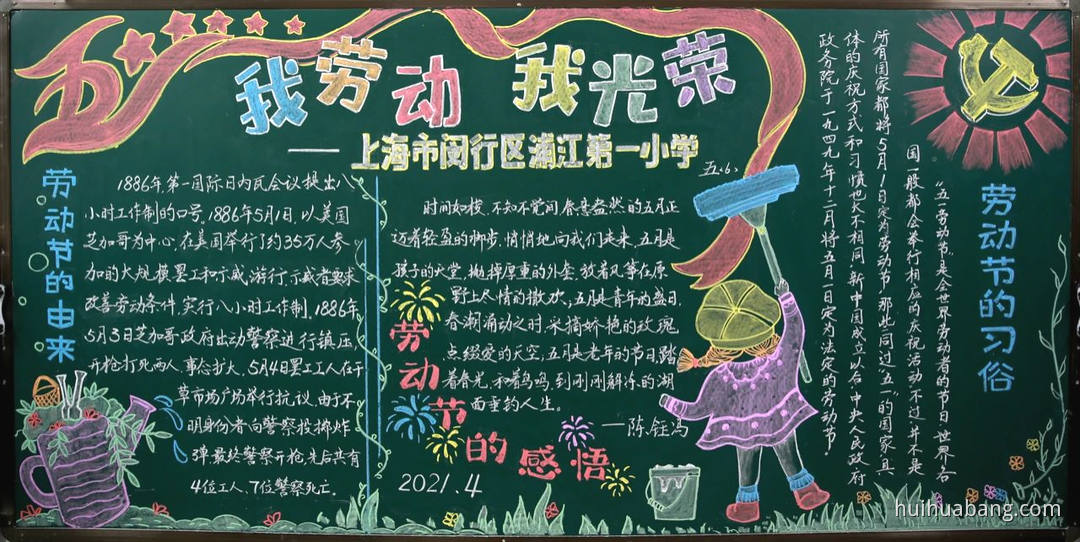 五
我劳动 我光荣
——上海市闵行区浦江第一小学
五.6.
劳动节的由来
1886年,第一国际日内瓦会议提出八
小时工作制的口号。1886年5月1日,以美国
芝加哥为中心,在美国举行了约35万人参
加的大规模罢工和示威游行,示威者要求
改善劳动条件,实行八小时工作制。1886年
5月3日芝加哥政府出动警察进行镇压
开枪打死两人,事态扩大,5月4日罢工工人在干
草市场广场举行抗议,由于不
明身份者向警察投掷炸
弹最终警察开枪,先后共有
4位工人、7位警察死亡。
劳动节的感悟
时间如梭,不知不觉间,春意盎然的五月正
迈着轻盈的脚步,悄悄地向我们走来,五月是
孩子的天堂,抛掉厚重的外套,放着风筝在原
野上尽情的撒欢;五月是青年的盛日,
春潮涌动之时,采摘娇艳的玫瑰
点缀爱的天空,五月是老年的节日,踏
着春光,和着鸟鸣,到刚刚解冻的湖
面垂钓人生。
——陈.钰冯
2021.4
劳动节的习俗
“五一劳动节”是全世界劳动者的节日,世界各
国一般都会举行相应的庆祝活动,不过,并不是
所有国家都将5月1日定为劳动节,那些同过“五一”的国家,具
体的庆祝方式和习惯也大不相同,新中国成立以后,中央人民政府
政务院于一九四九年十二月将五月一日定为法定的劳动节。
huihuabang.com